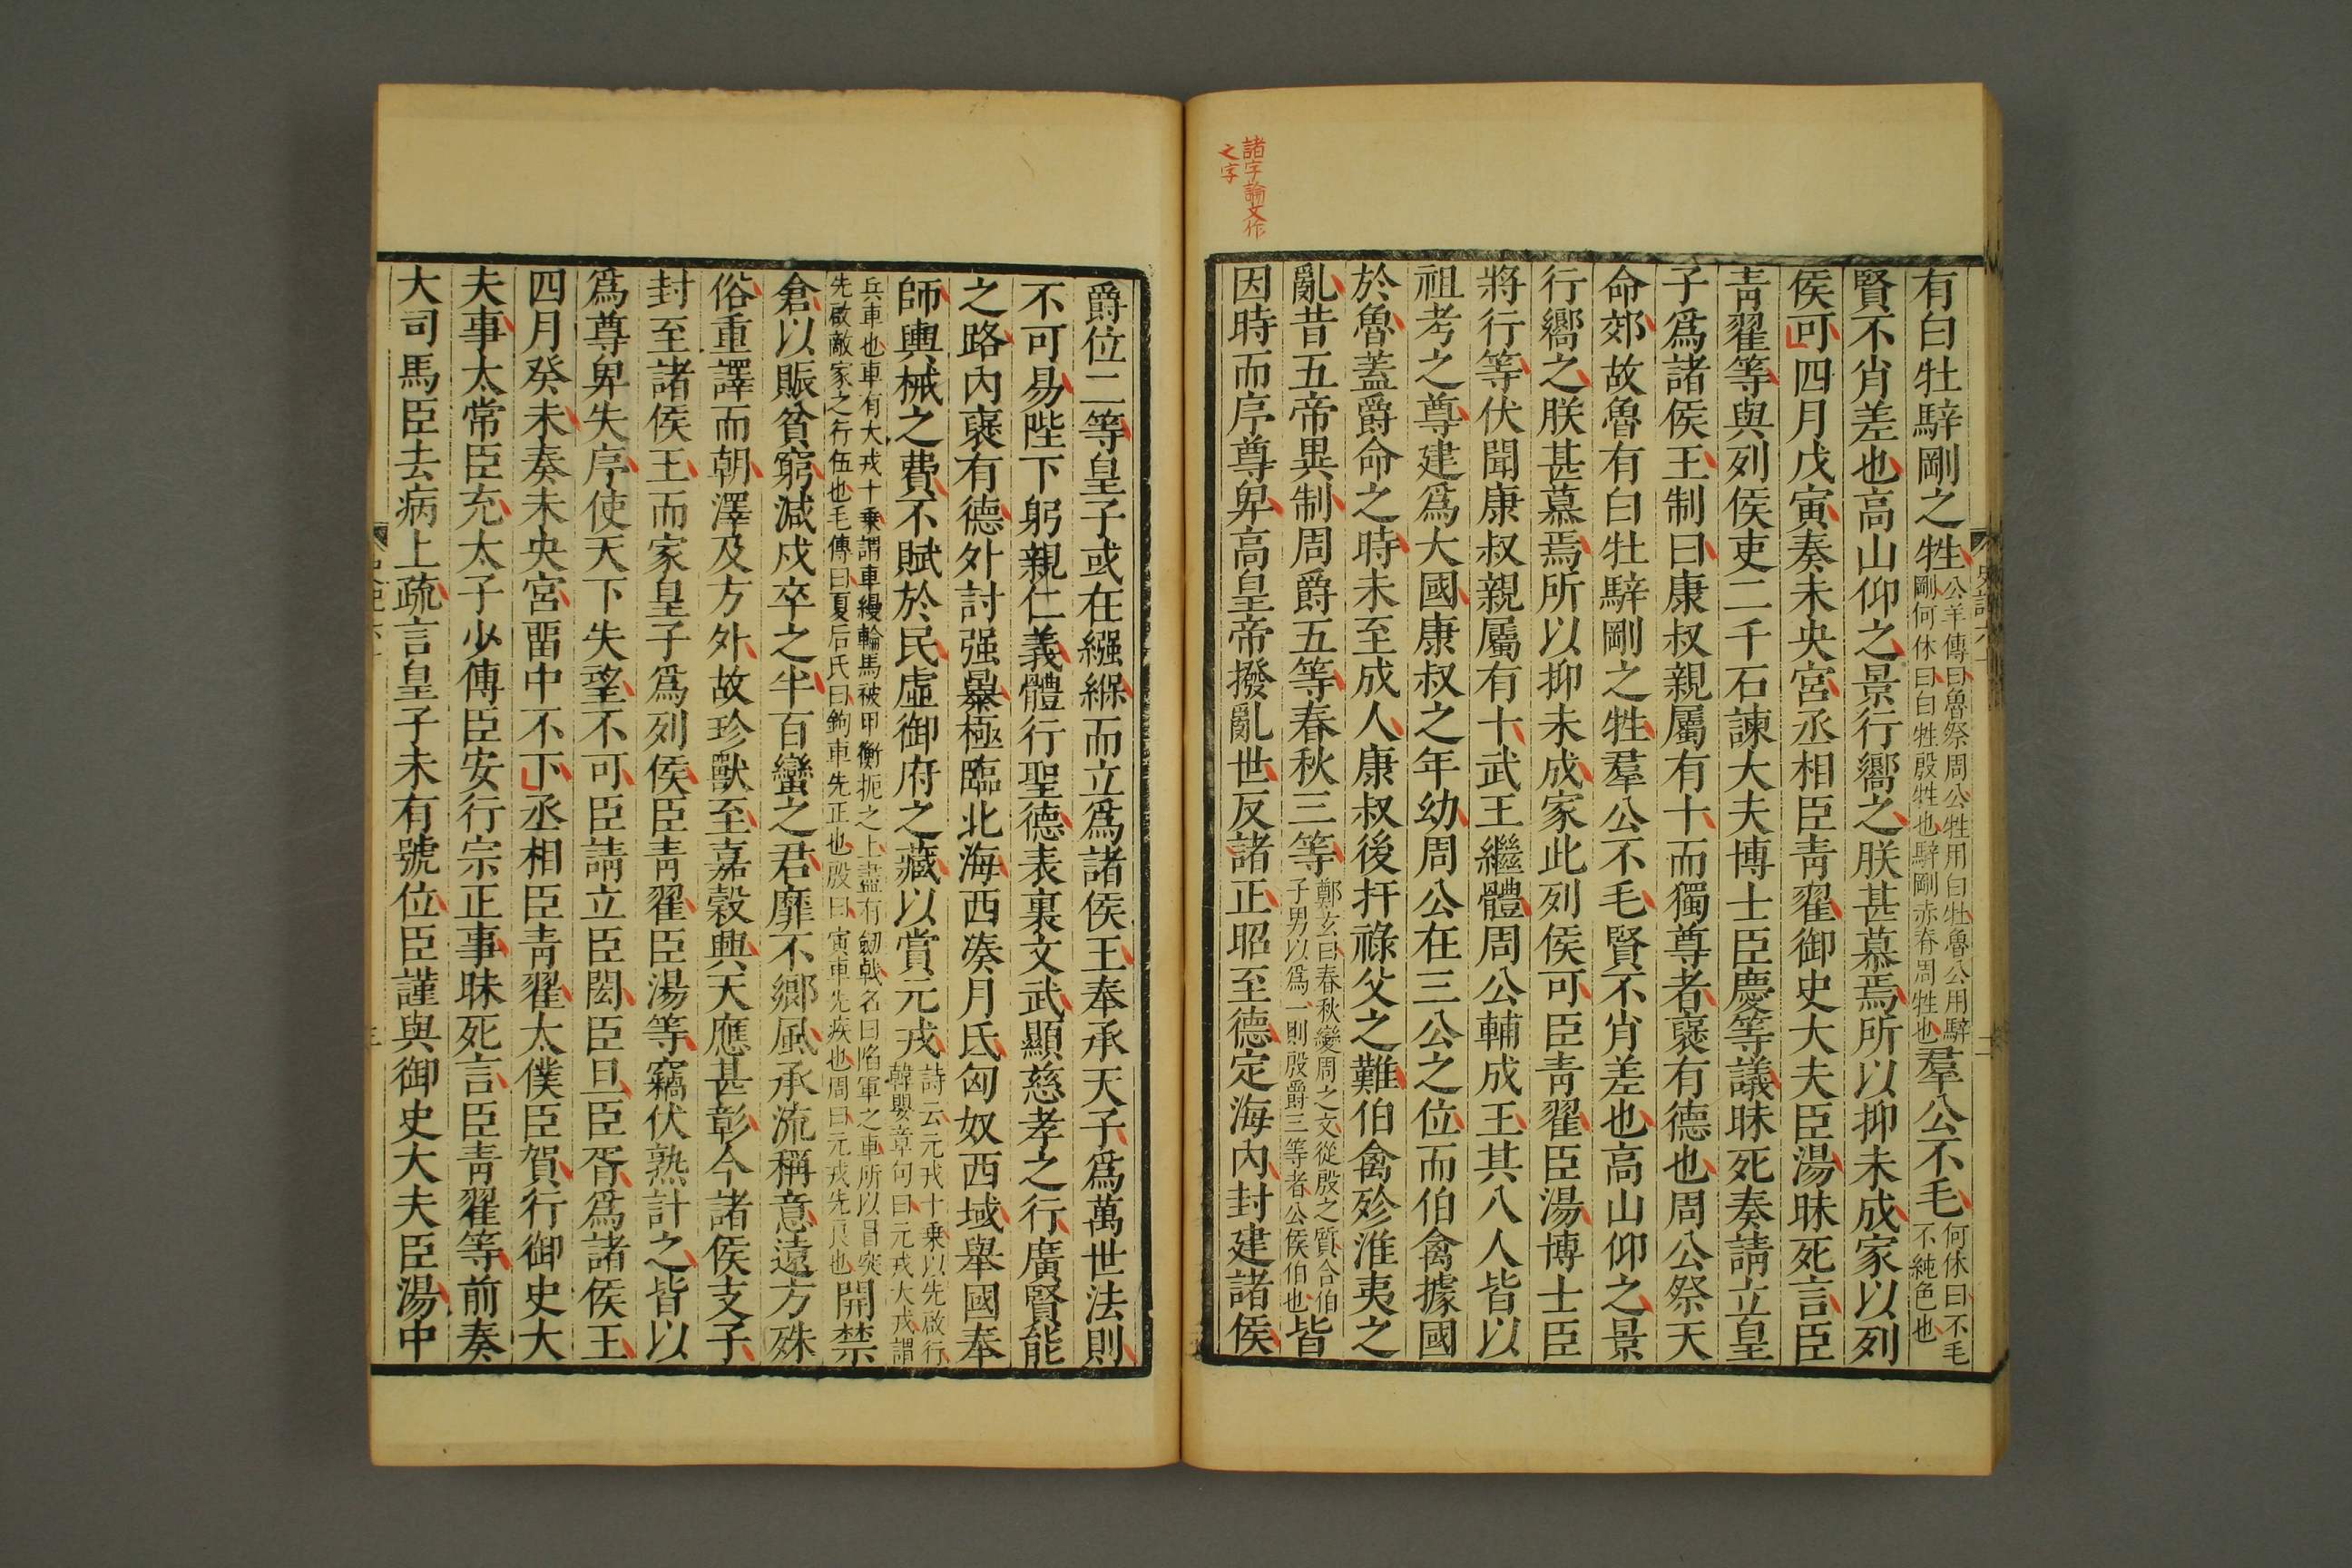 諸字論文作
之字
有白牡騂剛之牲公羊傳曰魯祭周公牲用白牡魯公用騂剛何休曰白牲殷牲也騂剛赤脊周牲也羣公不毛何休曰不毛不純色也
賢不肖差也高山仰之景行嚮之朕甚慕焉所以抑未成家以列
侯可四月戊寅奏未央宮丞相臣青翟御史大夫臣湯昧死言臣
青翟等與列侯吏二千石諫大夫博士臣慶等議昧死奏請立皇
子爲諸侯王制曰康叔親屬有十而獨尊者褒有德也周公祭天
命郊故魯有白牡騂剛之牲羣公不毛賢不肖差也高山仰之景
行嚮之朕甚慕焉所以抑未成家此列侯可臣青翟臣湯博士臣
將行等伏聞康叔親屬有十武王繼體周公輔成王其八人皆以
祖考之尊建爲大國康叔之年幼周公在三公之位而伯禽據國
於魯蓋爵命之時未至成人康叔後扞祿父之難伯禽殄淮夷之
亂昔五帝異制周爵五等春秋三等鄭玄曰春秋變周之文從殷之質合伯子男以爲一則殷爵三等者公侯伯也皆
因時而序尊卑高皇帝撥亂世反諸正昭至德定海內封建諸侯
爵位二等皇子或在繦緥而立爲諸侯王奉承天子爲萬世法則
不可易陛下躬親仁義體行聖德表裏文武顯慈孝之行廣賢能
之路內褒有德外討强暴極臨北海西湊月氐匈奴西域舉國奉
師輿械之費不賦於民虛御府之藏以賞元戎詩云元戎十乘以先啟行韓嬰章句曰元戎大戎謂
兵車也車有大戎十乘謂車縵輪馬被甲衡扼之上盡有劒戟名曰陷軍之車所以冒突先啟敵家之行伍也毛傳曰夏后氏曰鉤車先正也殷曰寅車先疾也周曰元戎先良也開禁
倉以賑貧窮減戍卒之半百蠻之君靡不鄉風承流稱意遠方殊
俗重譯而朝澤及方外故珍獸至嘉穀興天應甚彰今諸侯支子
封至諸侯王而家皇子爲列侯臣青翟臣湯等竊伏孰計之皆以
爲尊卑失序使天下失望不可臣請立臣閎臣旦臣胥爲諸侯王
四月癸未奏未央宮畱中不下丞相臣青翟太僕臣賀行御史大
夫事太常臣充太子少傅臣安行宗正事昧死言臣青翟等前奏
大司馬臣去病上疏言皇子未有號位臣謹與御史大夫臣湯中